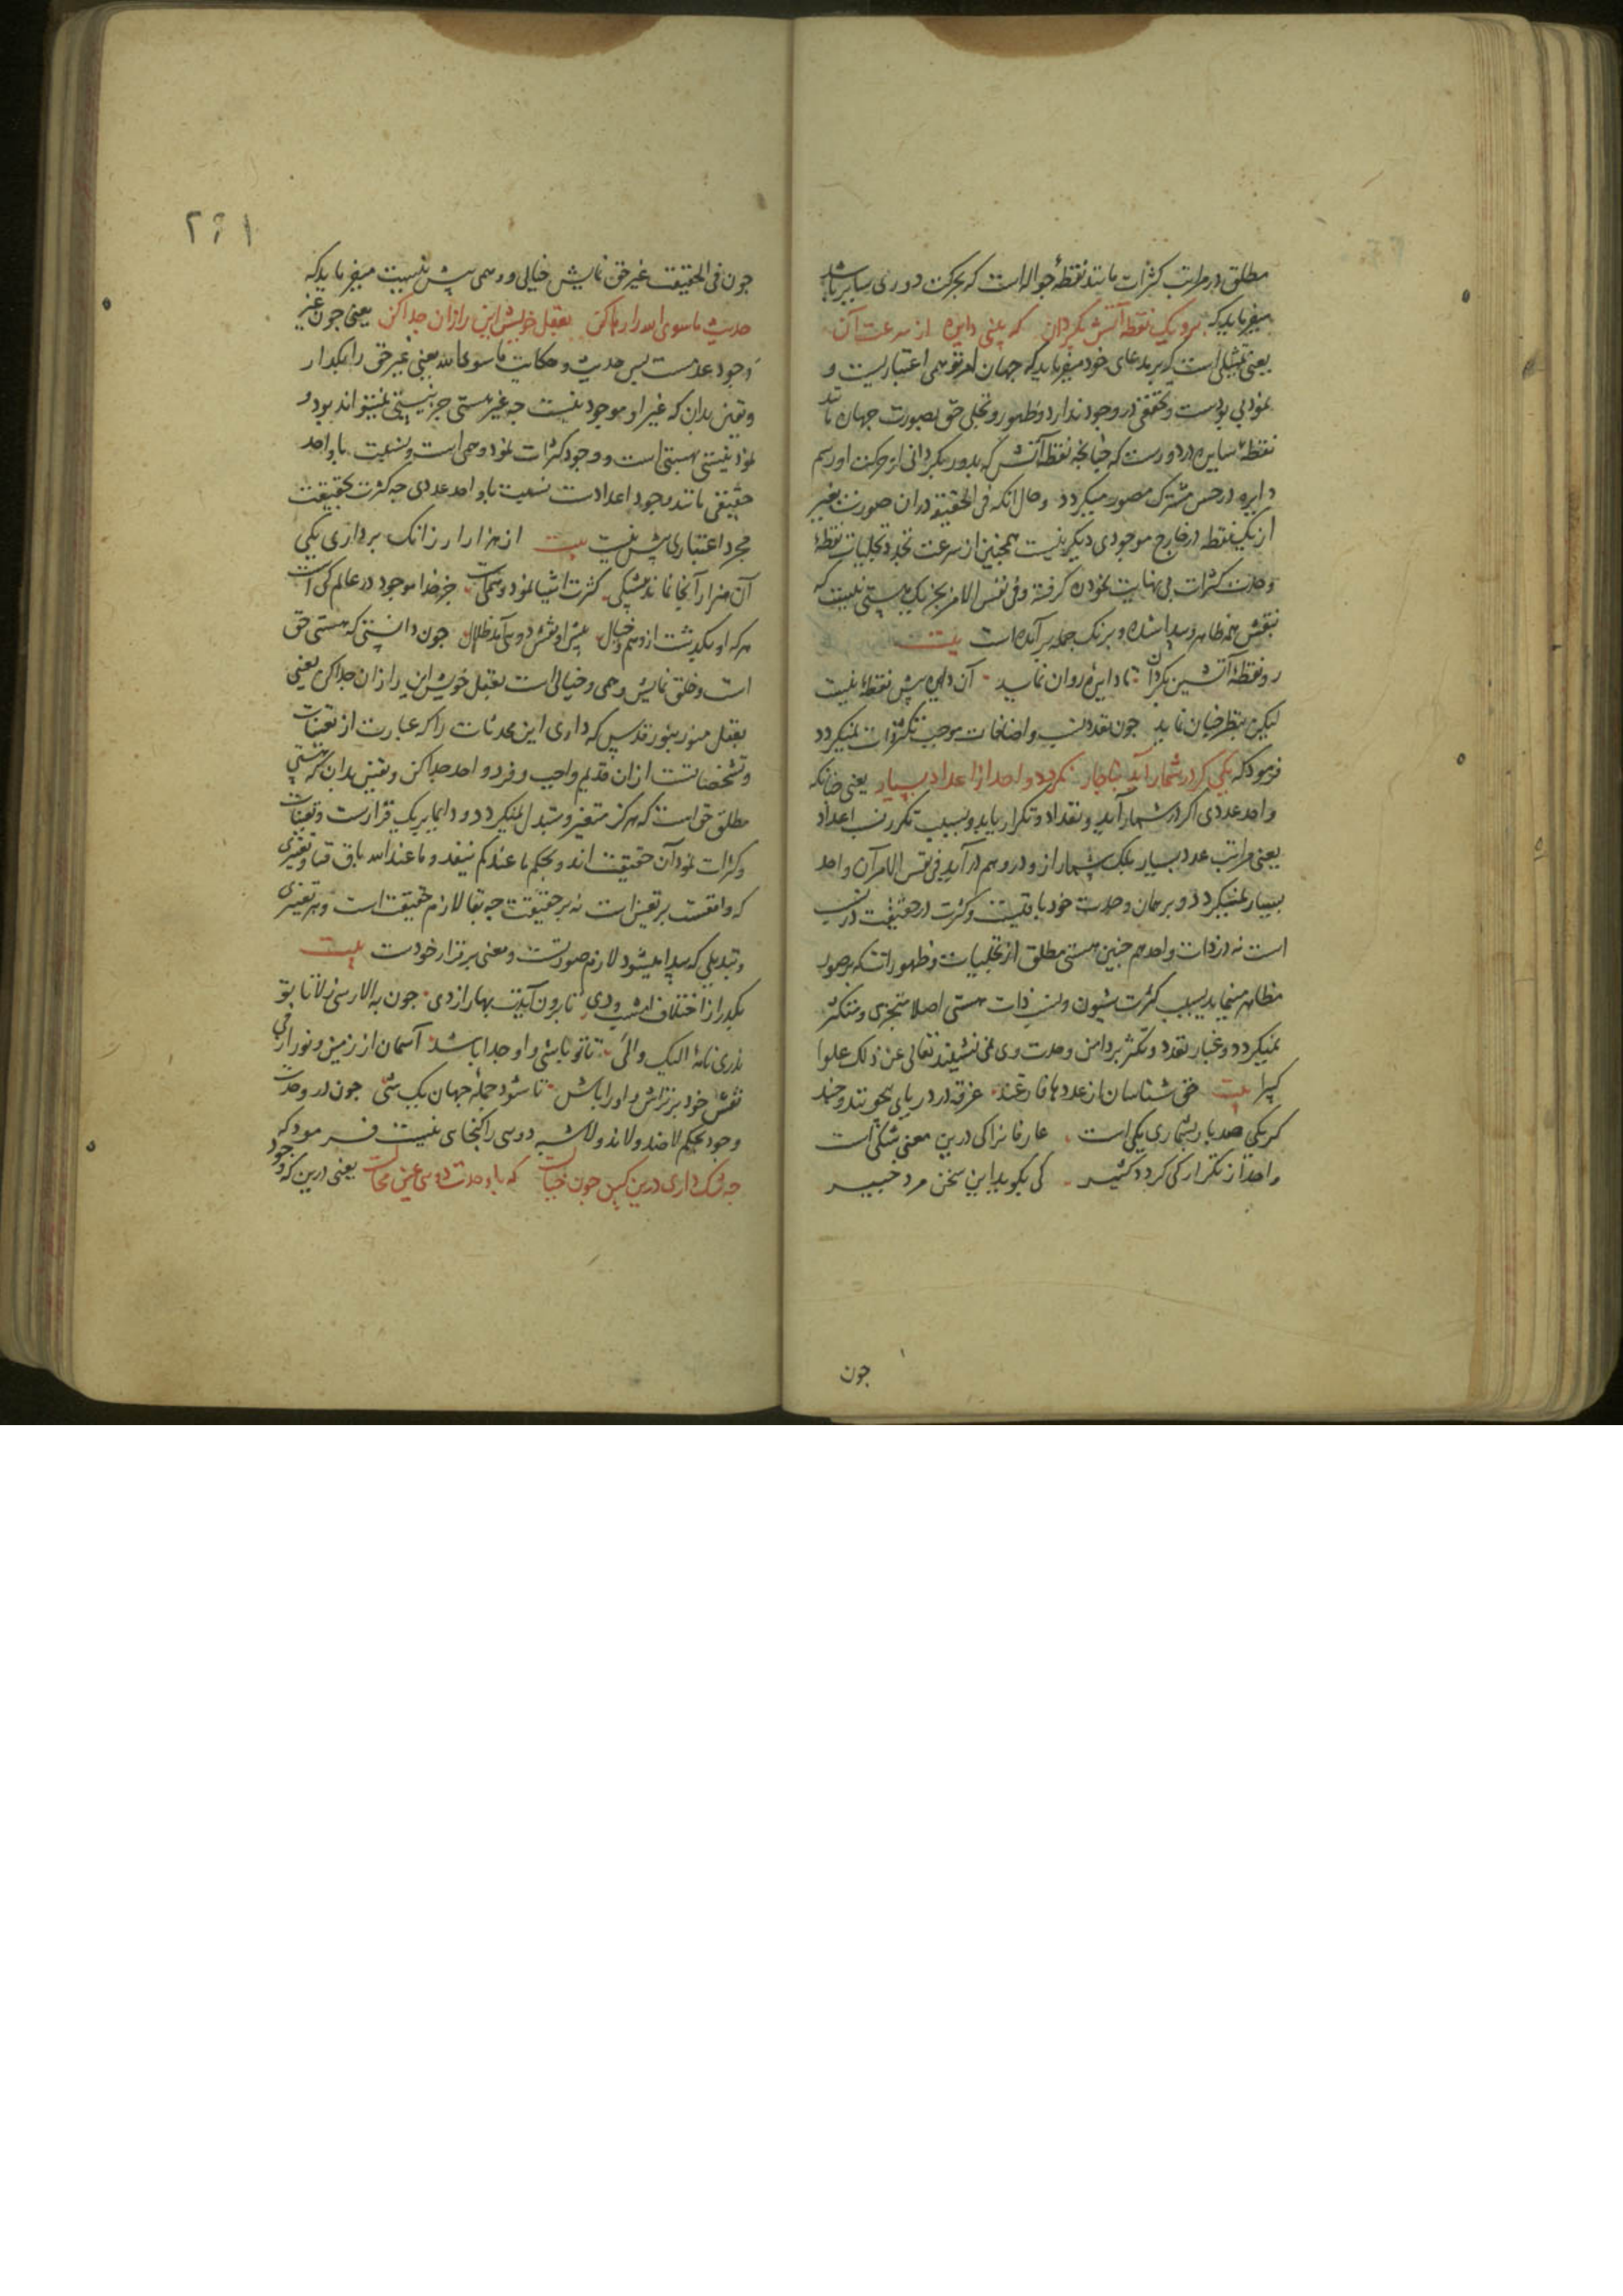 مطلق در مراتب کثرات مانند نقطهٔ جواله است که بحرکت دوری سایر باشد
میفرماید که برو یک نقطه آتش بکردان که بینی دایره از سرعت آن
یعنی تمثیلی است که بر مدعای خود میفرماید که جهان امر توهمی اعتباریست و
نمود بی بودست و تحققی در وجود ندارد و ظهور و تجلی حق بصورت جهان مانند
نقطهٔ سایره در دورست که چنانچه نقطه آتش که بدور بکردانی از حرکت او رسم
دایره در حس مشترک مصور میکردد و حال آنکه فی الحقیقه در آن صورت بغیر
از یک نقطه در خارج موجودی دیکر نیست همجنین از سرعت تجدد تجلیات نقطهٔ
وحدت کثرات بی نهایت نموده کرفته و فی نفس الامر بجز یک هستی نیست که
بنقش همه ظاهر و پیدا شده و برنک جمله برآمده است بیت
رو نقطهٔ آتشین بکردان تا دایرهٔ روان نماید آن دایره بیش نقطهٔ نیست
لیکن بنظر جنان نماید جون تعدد نسب و اضافات موجب تکثر ذات نمیکردد
فرمود که یکی کر در شمار آید بناجار نکردد واحد از اعداد بسیار یعنی جنانکه
واحد عددی اکر در شمار آید و تعداد و تکرار یابد و بسبب تکرر نسب اعداد
یعنی مراتب عدد بسیار بلک بیشمار ازو در وهم در آید فی نفس الامر آن واحد
بسیار نمیکردد و بر همان وحدت خود باقیست و کثرت در حقیقت در نسب
است نه در ذات واحد هم جنین هستی مطلق از تجلیات و ظهورات که بصور
مظاهر مینماید بسبب کثرت شیون و نسب ذات هستی اصلا متجزی و متکثر
نمیکردد و غبار تعدد و تکثر بر دامن وحدت وی نمی نشیند تعالی عن ذلک علوا
کبیرا بیت حق شناسان از عددها فارغند غرقه در دریای بیچونند و چند
کر یکی صد بار بشماری یکی است عارفانرا کی درین معنی شکی است
واحد از تکرار کی کردد کثیر کی بکوید این سخن مرد خبیر
جون
۲۶۱
جون فی الحقیقت غیر حق نمایش خیالی و وهمی بیش نیست میفرماید که
حدیث ماسوی الله را رها کن بعقل خویش این را زان جدا کن یعنی جون غیر
وجود عدمست بس حدیث و حکایت ماسوی الله یعنی غیر حق را بکذار
و یقین بدان که غیر او موجود نیست جه غیر هستی جز نیستی نمیتواند بود و
نمود نیستی بهستی است و وجود کثرات نمود وهمی است و نسبت با واحد
حقیقی مانند وجود اعدادست نسبت با واحد عددی جه کثرت بحقیقت
مجرد اعتباری بیش نیست بیت از هزار ار زانک برداری یکی
آن هزار آنجا نماند بیشکی کثرت اشیا نمود وهمی است جز خدا موجود در عالم کی است
هر که او بکذشت از وهم و خیال پیش او نقش دویی آمد ظلال جون دانستی که هستی حق
است و خلق نمایش وهمی و خیالی است بعقل خویش این را زان جدا کن یعنی
بعقل منور بنور قدس که داری این محدثات را که عبارت از تعینات
و تشخصاتست از ان قدیم واجب و فرد و احد جدا کن و یقین بدان که هستی
مطلق حق است که هرکز متغیر و متبدل نمیکردد و دایما بر یک قرارست و تعینات
و کثرات نمود آن حقیقت اند و بحکم ما عندکم ینفد و ما عند الله باق فنا و تغیری
که واقعست بر تعین است نه بر حقیقت جه بقا لازم حقیقت است و هر تغییری
و تبدیلی که پیدا میشود لازم صورتست و معنی بر قرار خودست بیت
بکذر از اختلاف امشب و دی تا برون آیدت بهار از دی جون به الا رسی ز لا تا بتو
نامهٔ الیک و الی تا تو باشی و او جدا باشد آسمان از زمین و نور از فی
نقش خود بر تراش و او را باش تا شود جملهٔ جهان یک شی جون در وحدت
وجود بحکم لا ضد و لا ند و لا شبه دویی را کنجای نیست فرمود که
جه شک داری درین کین جون خیالست که با وحدت دویی عین محالست یعنی درین که وجود